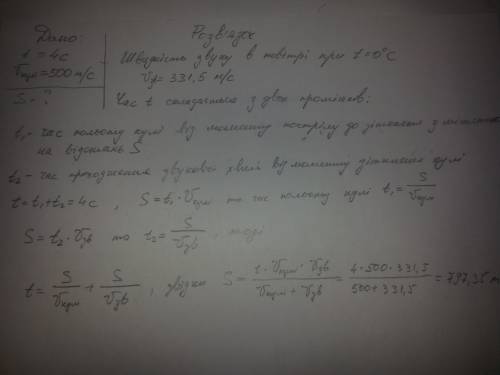 Дано:
t = 4c
Vкулі = 500 м/с
S - ?
Розв'язок
Швидкість звуку в повітрі при t = 0°C
Vзв = 331,5 м/с
Час t складається з двох проміжків:
t₁ - час польоту кулі від моменту пострілу до зіткнення з
на відстань S
t₂ - час проходження звукової хвилі від моменту зіткнення кулі
t = t₁ + t₂ = 4c , S = t₁ · Vкулі то час польоту кулі t₁ = S/Vкулі
S = t₂ · Vзв то t₂ = S/Vзв , тоді
t = S/Vкулі + S/Vзв , звідки S = t · Vкулі · Vзв / Vкулі + Vзв = 4 · 500 · 331,5 / 500 + 331,5 = 797,35 м